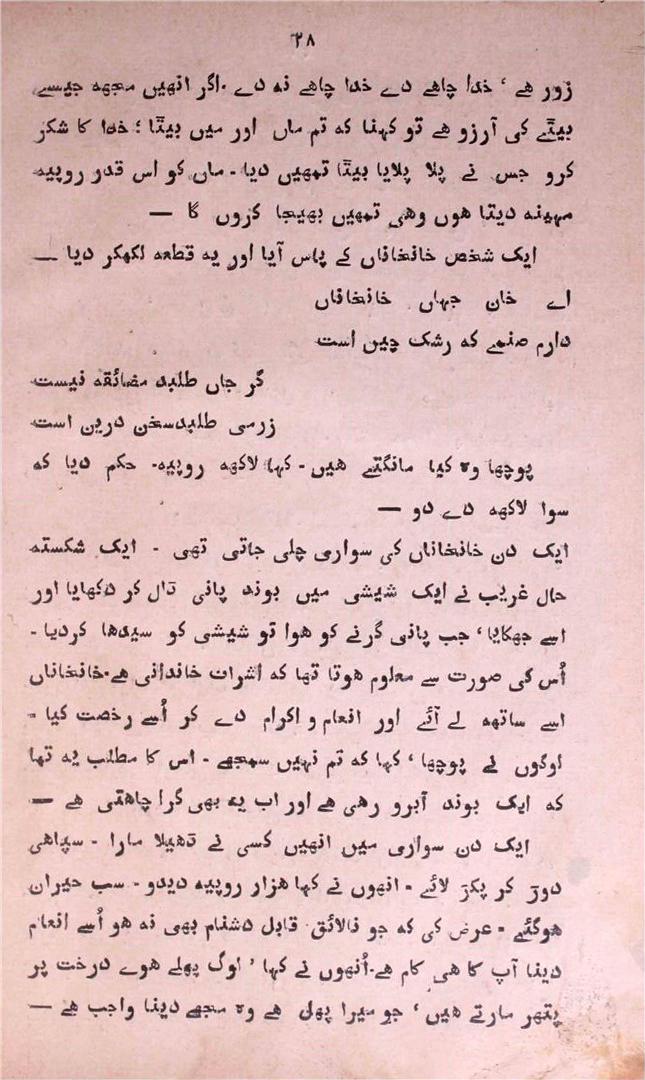 ۲۸
زور ہے ' خدا چاہے دے خدا چاہے نہ دے ۔ اگر انھیں مجھہ جیسے
بیٹے کی آرزو ہے تو کہنا کہ تم ماں اور میں بیٹا ؛ خدا کا شکر
کرو جس نے پلا پلایا بیٹا تمھیں دیا ۔ ماں کو اس قدر روپیہ
مہینہ دیتا ہوں وہی تمھیں بھیجا کروں گا —
ایک شخص خانخاناں کے پاس آیا اور یہ قطعہ لکھکر دیا —
اے خان جہاں خانخاناں
دارم صنمے کہ رشک چین است
گر جاں طلبد مضائقہ نیست
زرمی طلبدسخن درین است
پوچھا وہ کیا مانگتے ہیں ۔ کہا لاکھہ روپیہ ۔ حکم دیا کہ
سوا لاکھہ دے دو —
ایک دن خانخاناں کی سواری چلی جاتی تھی ۔ ایک شکستہ
حال غریب نے ایک شیشی میں بوند پانی ڈال کر دکھایا اور
اسے جھکایا ' جب پانی گرنے کو ہوا تو شیشی کو سیدھا کردیا ۔
اُس کی صورت سے معلوم ہوتا تھا کہ اشراف خاندانی ہے ۔ خانخاناں
اسے ساتھہ لے آئے اور انعام و اکرام دے کر اُسے رخصت کیا ۔
لوگوں نے پوچھا ' کہا کہ تم نہیں سمجھے ۔ اس کا مطلب یہ تھا
کہ ایک بوند آبرو رہی ہے اور اب یہ بھی گرا چاہتی ہے —
ایک دن سواری میں انھیں کسی نے ڈھیلا مارا ۔ سپاہی
دوڑ کر پکڑ لائے ۔ انھوں نے کہا ہزار روپیہ دیدو ۔ سب حیران
ہوگئے ۔ عرض کی کہ جو نالائق قابل دشنام بھی نہ ہو اُسے انعام
دینا آپ کا ہی کام ہے ۔ اُنھوں نے کہا ' لوگ پھلے ہوے درخت پر
پتھر مارتے ہیں ' جو میرا پھل ہے وہ مجھے دینا واجب ہے —